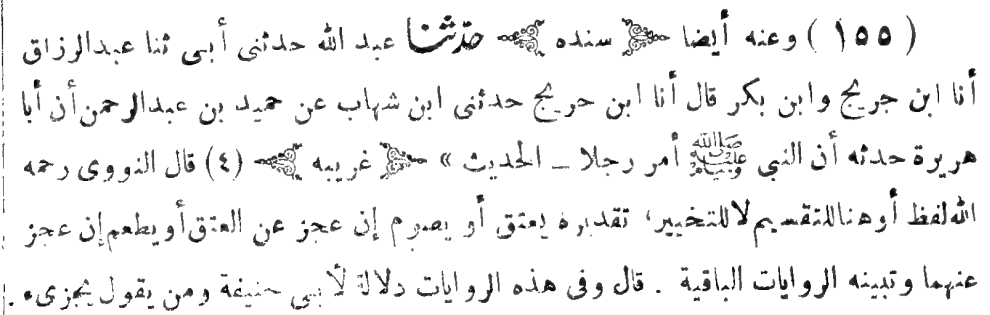 ( ١٥٥ ) وعنه أيضا ﴿ سنده ﴾ حدثنا عبد الله حدثنى أبى ثنا عبدالرزاق
أنا ابن جريج وابن بكر قال أنا ابن جريج حدثنى ابن شهاب عن حميد بن عبدالرحمن أن أبا
هريرة حدثه أن النبى ﷺ أمر رجلا ــ الحديث » ﴿ غريبه ﴾ (٤) قال النووى رحمه
الله لفظ أو هنا للتقسيم لا للتخيير، تقديره يعتق أو يصوم إن عجز عن العتق أو يطعم إن عجز
عنهما وتبينه الروايات الباقية . قال وفى هذه الروايات دلالة لأبى حنيفة ومن يقول يجزىء .